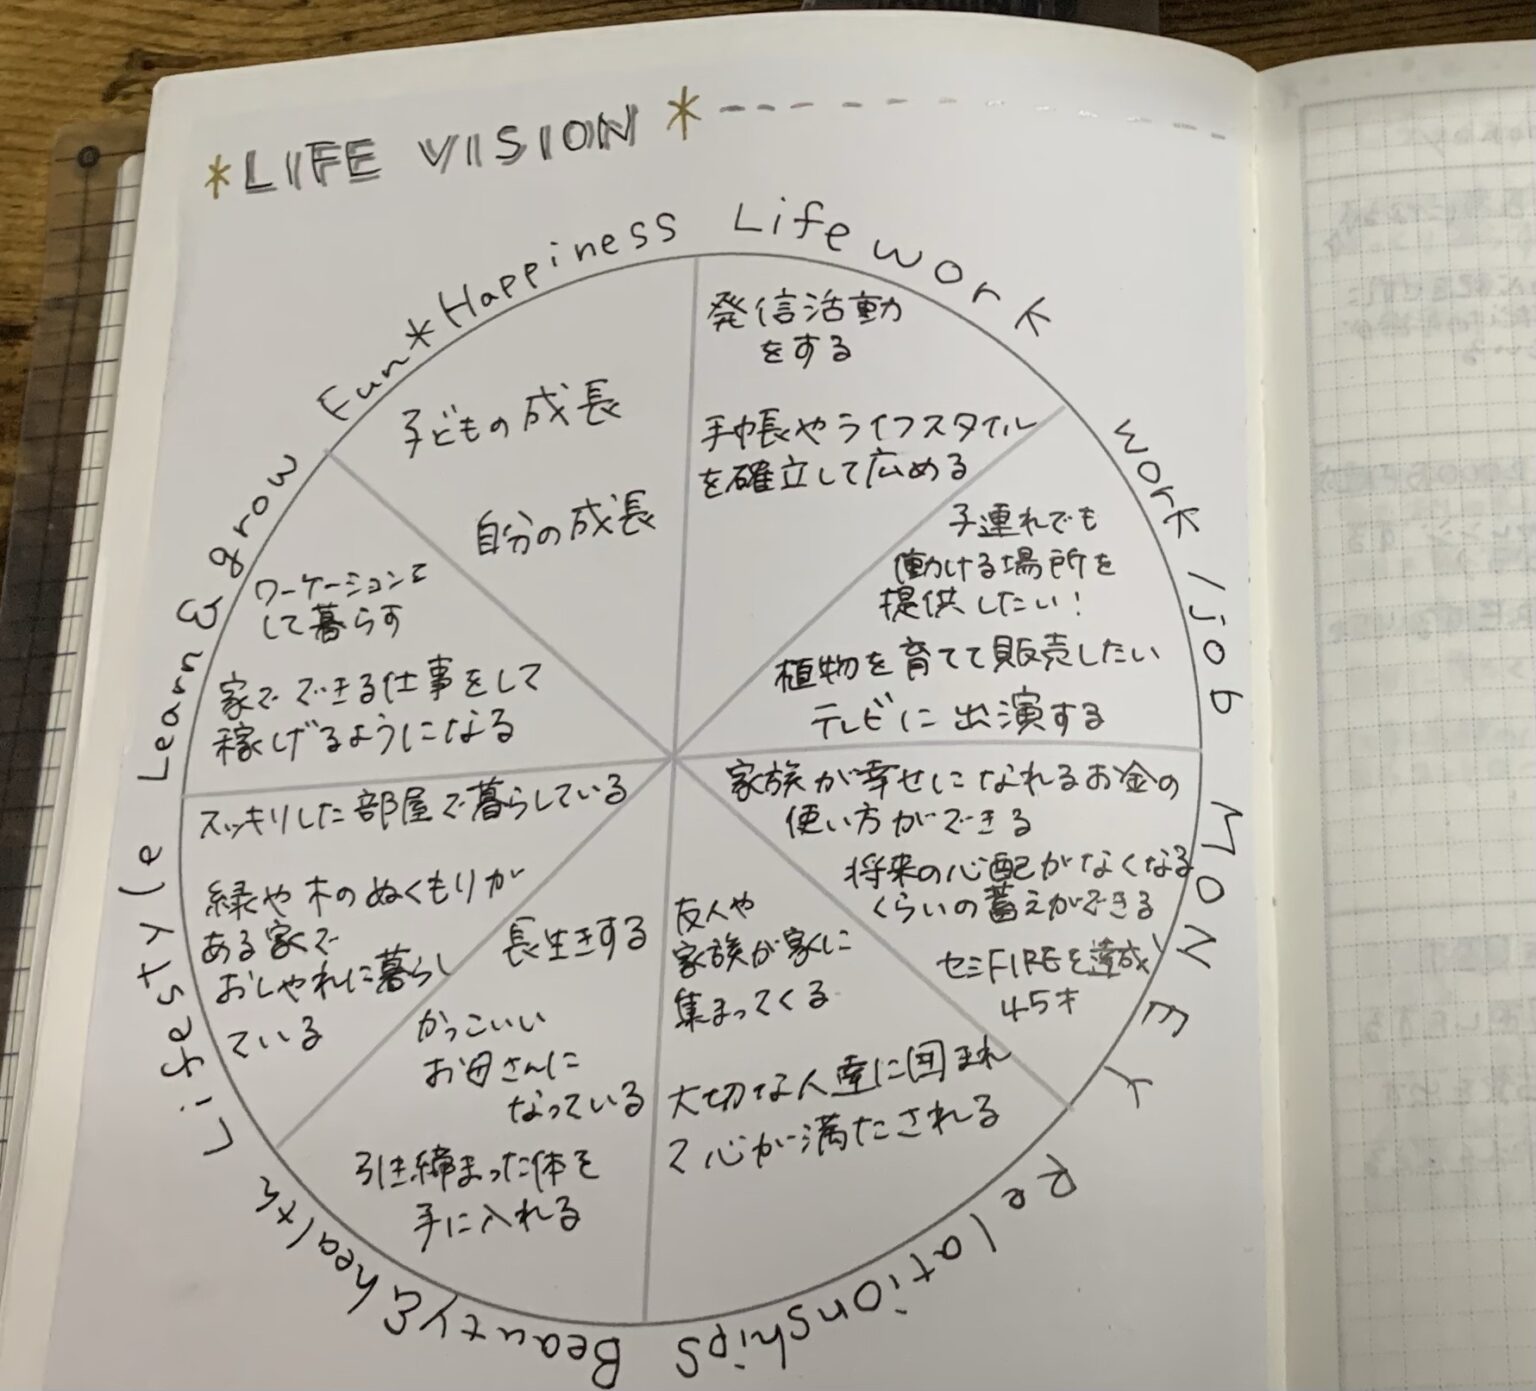 *LIFE VISION*
Lifework
発信活動
をする
手帳やライフスタイル
を確立して広める
work/job
子連れでも
働ける場所を
提供したい!
植物を育てて販売したい
テレビに出演する
MONEY
家族が幸せになれるお金の
使い方ができる
将来の心配がなくなる
くらいの蓄えができる
セミFIREを達成
45才
Relationships
友人や
家族が家に
集まってくる
大切な人達に囲まれ
て心が満たされる
Beauty&healty
長生きする
かっこいい
お母さんに
なっている
引き締まった体を
手に入れる
Lifestyle
スッキリした部屋で暮らしている
緑や木のぬくもりが
ある家で
おしゃれに暮らし
ている
Learn&grow
ワーケーションを
して暮らす
家でできる仕事をして
稼げるようになる
Fun*Happiness
子どもの成長
自分の成長